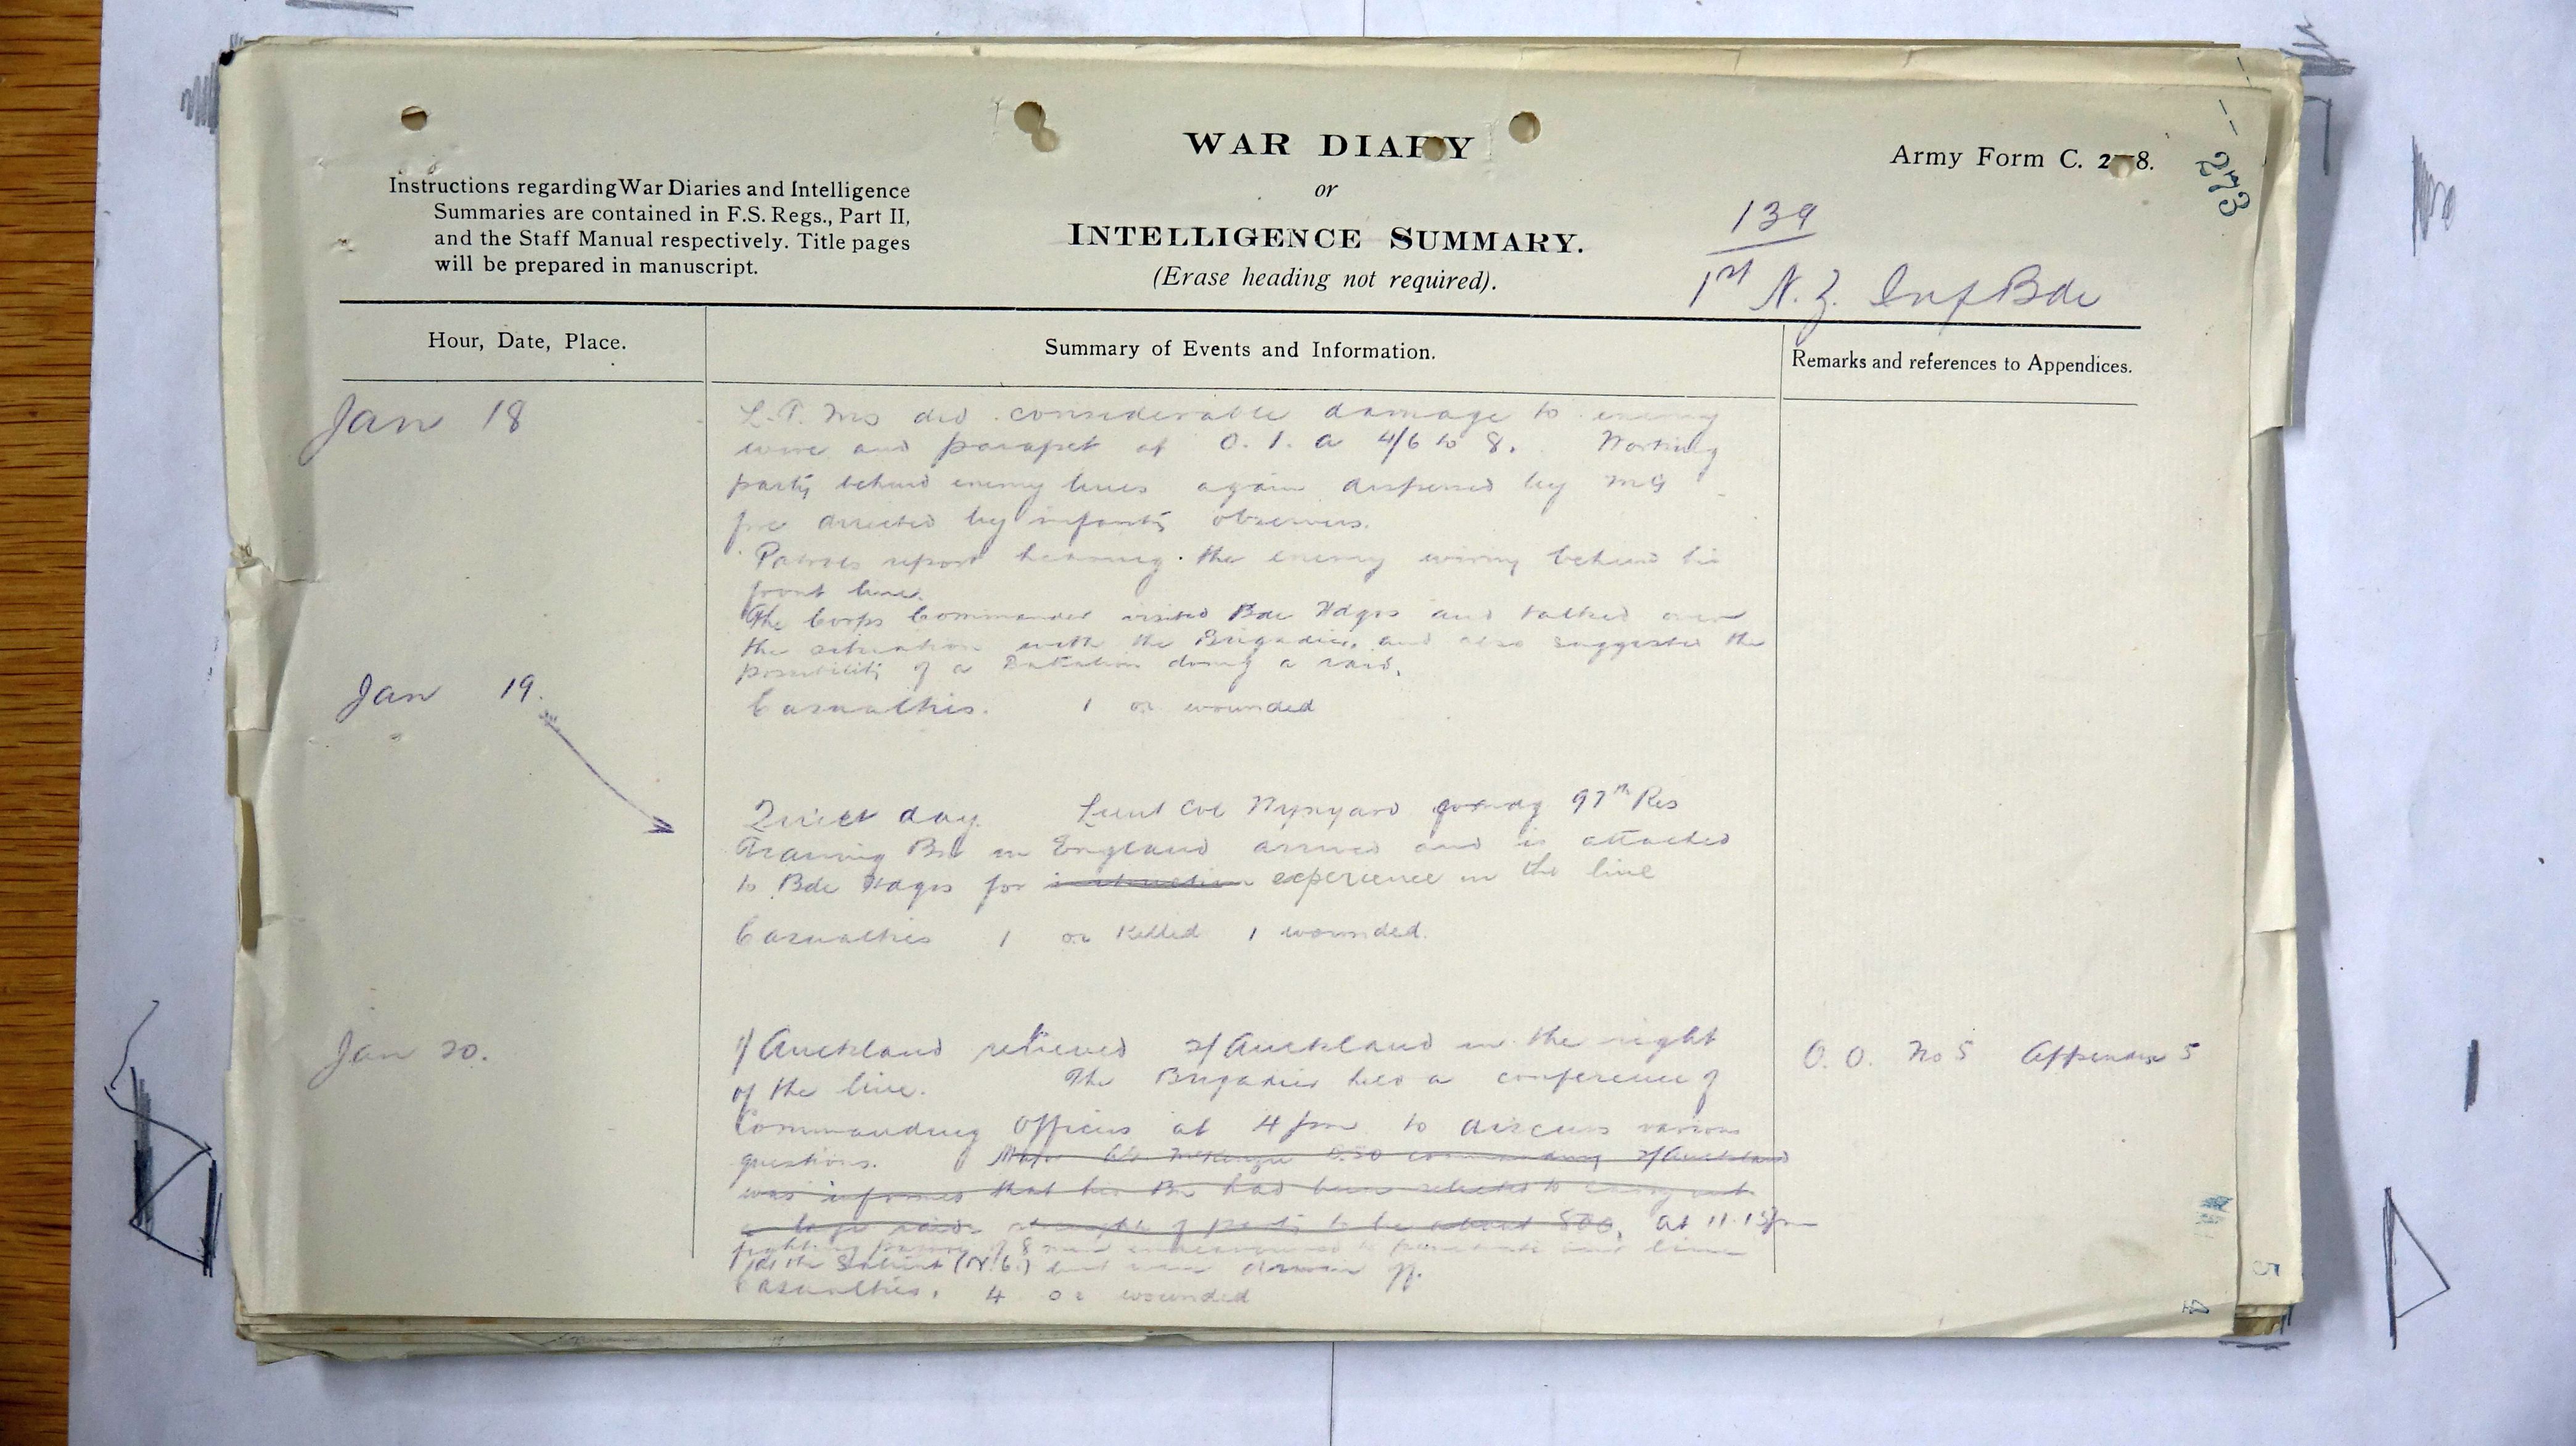 WAR DIARY
or
INTELLIGENCE SUMMARY.
(Erase heading not required).
Instructions regarding War Diaries and Intelligence
Summaries are contained in F.S. Regs., Part II,
and the Staff Manual respectively. Title pages
will be prepared in manuscript.
Army Form C. 2 8.
273
139
1st N.Z. Inf Bde
Hour, Date, Place.
Summary of Events and Information.
Remarks and references to Appendices.
Jan 18
L.T. Ms did considerable damage to enemy
wire and parapet at O. 1. a 4/6 to 8. Working
party behind enemy lines again dispersed by MG
fire directed by infanty observers.
Patrols report hearing the enemy wiring behind his
front line.
The Corps Commander visited Bde Hdqrs and talked over
the situation with the Brigadier, and also suggested the
possibility of a Battalion doing a raid.
Jan 19.
Casualties. 1 or wounded
Quiet day. Lieut Col 97th Res
Training Bn in England arrived and is attached
to Bde Hdqrs for instruction experience in the line
Casualties 1 or Killed 1 wounded.
Jan 20.
1/Auckland relieved 2/Auckland in the right
of the line. The Brigadier held a conference of
Commanding Officers at 4 pm to discuss various
questions. Major McKenzie commanding 2/Auckland
was informed that his Bn had been selected to carry out
a large raid strength of party to be about 500, at 11.15pm
fighting patrol of 8 men endeavoured to penetrate line
at the Salient (N.6.) but were driven off.
Casualties. 4 or wounded
O. O. No 5 Appendix 5
5
4